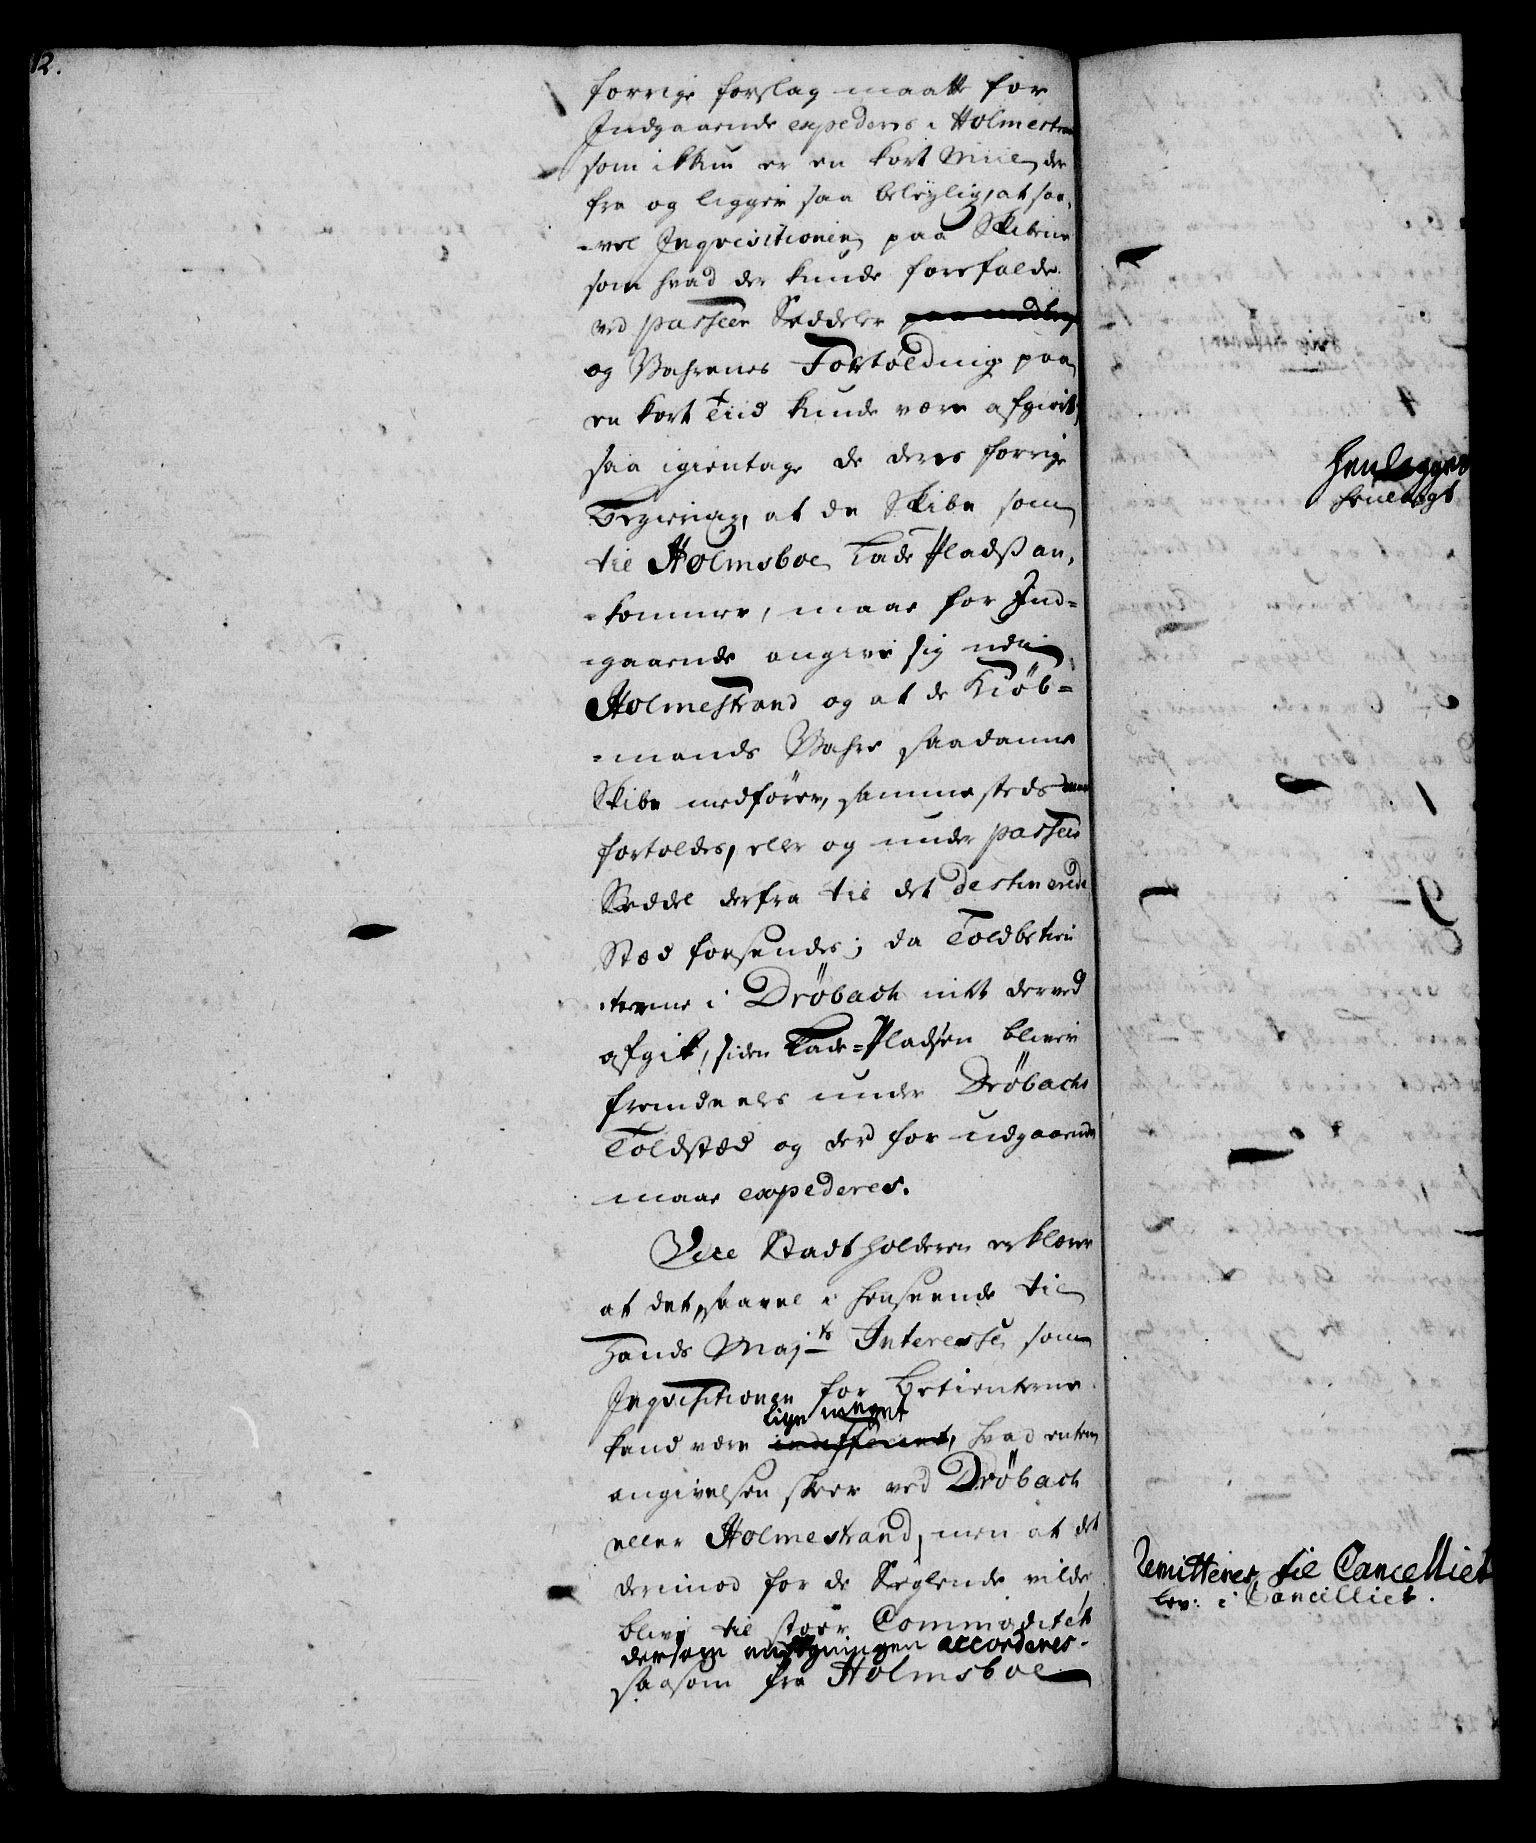 12.
forrige forslag maatte for
Indgaaende expederes i Holmestran
som ikkun er en kort Miil der
fra og ligger saa beleylig, at saa-
-vel Inqvisitionen paa Skibene
som hvad der kunde forefalde
ved passeer Seddeler
og Vahrenes Fortoldning paa
en kort Tiid kunde være afgiort,
saa igientage de deres forrige
Begiering, at de Skibe som
til Holmsboe Lade Pladß an-
-kommer, maae for Ind-
-gaaende angive sig udi
Holmestrand og at de Kiøb-
-mands Vahre saadanne
Skibe medfører, sammesteds maae
fortoldes, eller og under passeer
Seddel derfra til det destinerede
Stæd forsendes; da Toldbetien
-terne i Drøbach intet derved
afgik, siden Lade-Pladsen bliver
fremdeeles under Drøbachs
Toldstæd og der for udgaaende
maae expederes.
Vice Stadtholderen erklærer
at det, saavel i henseende til
Hands Maj:ts Interesse som
Inqvisitionen for Betienterne
lige meget
kand være indifferent, hvad enten
angivelsen skeer ved Drøbach
eller Holmestrand, men at det
derimod for de Seglende vilde
blive til stoer Commoditet
dersom ansøgningen accorderes
saasom fra Holmsboe
henlegges
henlagt
Remitteres til Cancelliet
lev: i Cancelliet.